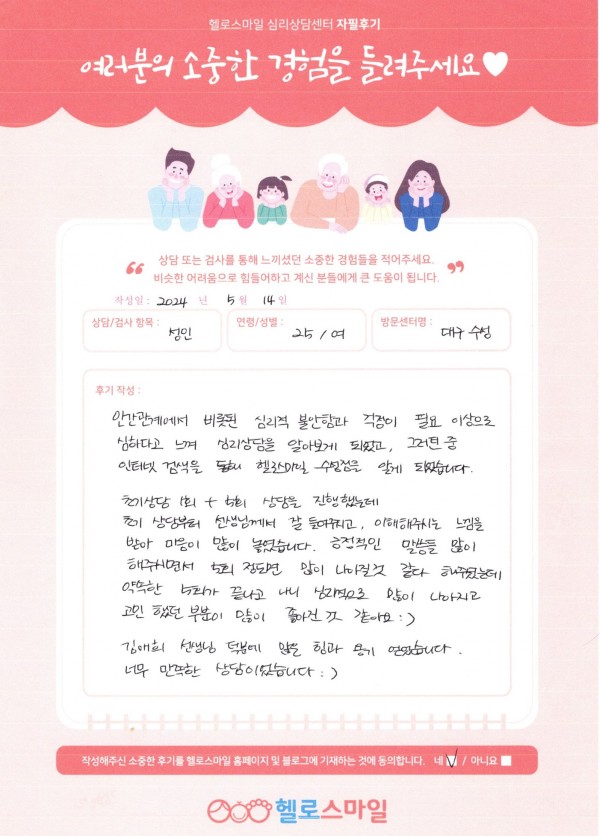 헬로스마일 심리상담센터 자필후기
여러분의 소중한 경험을 들려주세요♥
상담 또는 검사를 통해 느끼셨던 소중한 경험들을 적어주세요.
비슷한 어려움으로 힘들어하고 계신 분들에게 큰 도움이 됩니다.
작성일 : 2024 년 5 월 14 일
상담/검사 항목 : 성인
연령/성별 : 25 / 여
방문센터명 : 대구 수성
후기 작성 :
인간관계에서 비롯된 심리적 불안함과 걱정이 필요 이상으로
심하다고 느껴 심리상담을 알아보게 되었고, 그러던 중
인터넷 검색을 통해 헬로스마일 수성점을 알게 되었습니다.
초기상담 1회 + 5회 상담을 진행했는데
초기 상담부터 선생님께서 잘 들어주시고, 이해해주시는 느낌을
받아 마음이 많이 놓였습니다. 긍정적인 말씀들 많이
해주시면서 5회 정도면 많이 나아질것 같다 해주셨는데
약속한 5회가 끝나고 나니 심리적으로 많이 나아지고
고민 했던 부분이 많이 좋아진 것 같아요 : )
김애희 선생님 덕분에 많은 힘과 용기 얻었습니다.
너무 만족한 상담이었습니다 : )
작성해주신 소중한 후기를 헬로스마일 홈페이지 및 블로그에 기재하는 것에 동의합니다. 네 ☑ / 아니요 □
헬로스마일